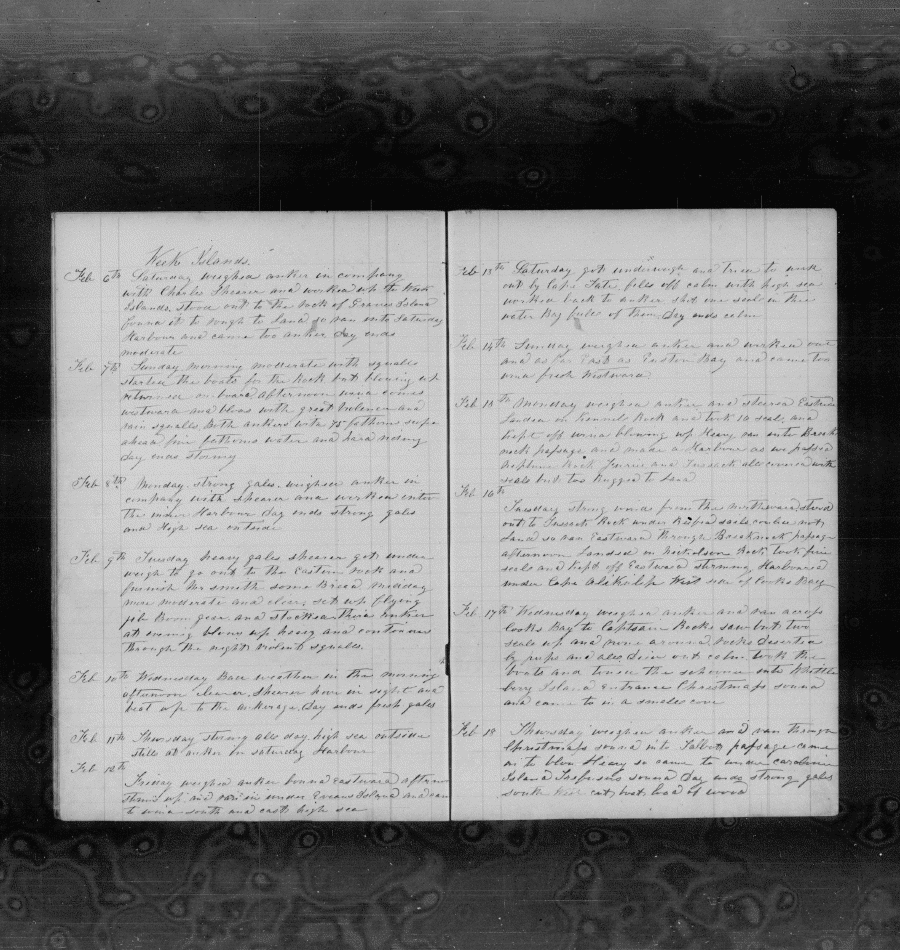 Week Islands.
Feb 6th Saturday weighed anker in company
with Charles Shearer and worked up to Week
Islands. stood out to the rock of Graves Island
found it to rough to land so ran into Saturday
Harbour and came too anker Day ends
moderate
Feb 7th Sunday morning moderate with squalls
started the boats for the Rock but blowing up
returned on board afternoon wind comes
westward and blows with great violence and
rain squalls both ankers with 75 fathoms scope
ahead five fathoms water and hard riding
Day ends stormy
Feb 8th Monday strong gales. weighed anker in
company with Shearer and worked into
the inner Harbour Day ends strong gales
and High sea outside
Feb 9th Tuesday heavy gales Shearer got under
weigh to go out to the Eastern rock and
furnish Mr Smith some Bread midday
more moderate and clear, set up flying
jib Boom gear and stocked their anker
at evening blows up heavy and continues
through the night violent squalls.
Feb 10th Wednesday Bad weather in the morning
afternoon clearer. Shearer hove in sight and
beat up to the ankerage. Day ends fresh gales
Feb 11th Thursday strong all day high sea outside
still at anker in Saturday Harbour
Feb 12th
Friday weighed anker bound eastward
up and ran in under Island and
to wind south and east high sea
Feb 13th Saturday got underweigh and tried to
out by Cape Tate, fell off calm with high sea
worked back to anker shot one seal in
water Bay full of them Day ends calm
Feb 14th Sunday weighed anker and worked out
and as far East as Easton Bay and came too
wind fresh Westward
Feb 15th Monday weighed anker and steered Eastward
Landed on Kennel Rock and took 10 seals and
kept off wind blowing up Heavy ran into
neck passage and made a Harbour as we passed
Neptune Rock and Tussack all covered with
seals but too Rugged to Land
Feb 16th
Tuesday strong wind from the northward stood
out to Tussack Rock under seals could not
Land so ran Eastward through passage
afternoon Landed on Rock took five
seals and kept off Eastward Harboured
under Cape West side of Cooks Bay
Feb 17th Wednesday weighed anker and ran across
Cooks Bay to Capstan Rocks saw but two
seals up and none around rocks deserted
by pups and all, Died out calm took the
boats and towed the schooner into Whittle
berry Island entrance Christmass sound
and came to in a small cove
Feb 18 Thursday weighed anker and ran through
Christmass sound into Talbott passage came
on to blow Heavy so came to under Caroline
Island Trefusis sound Day ends strong gales
south West cut boat load of wood